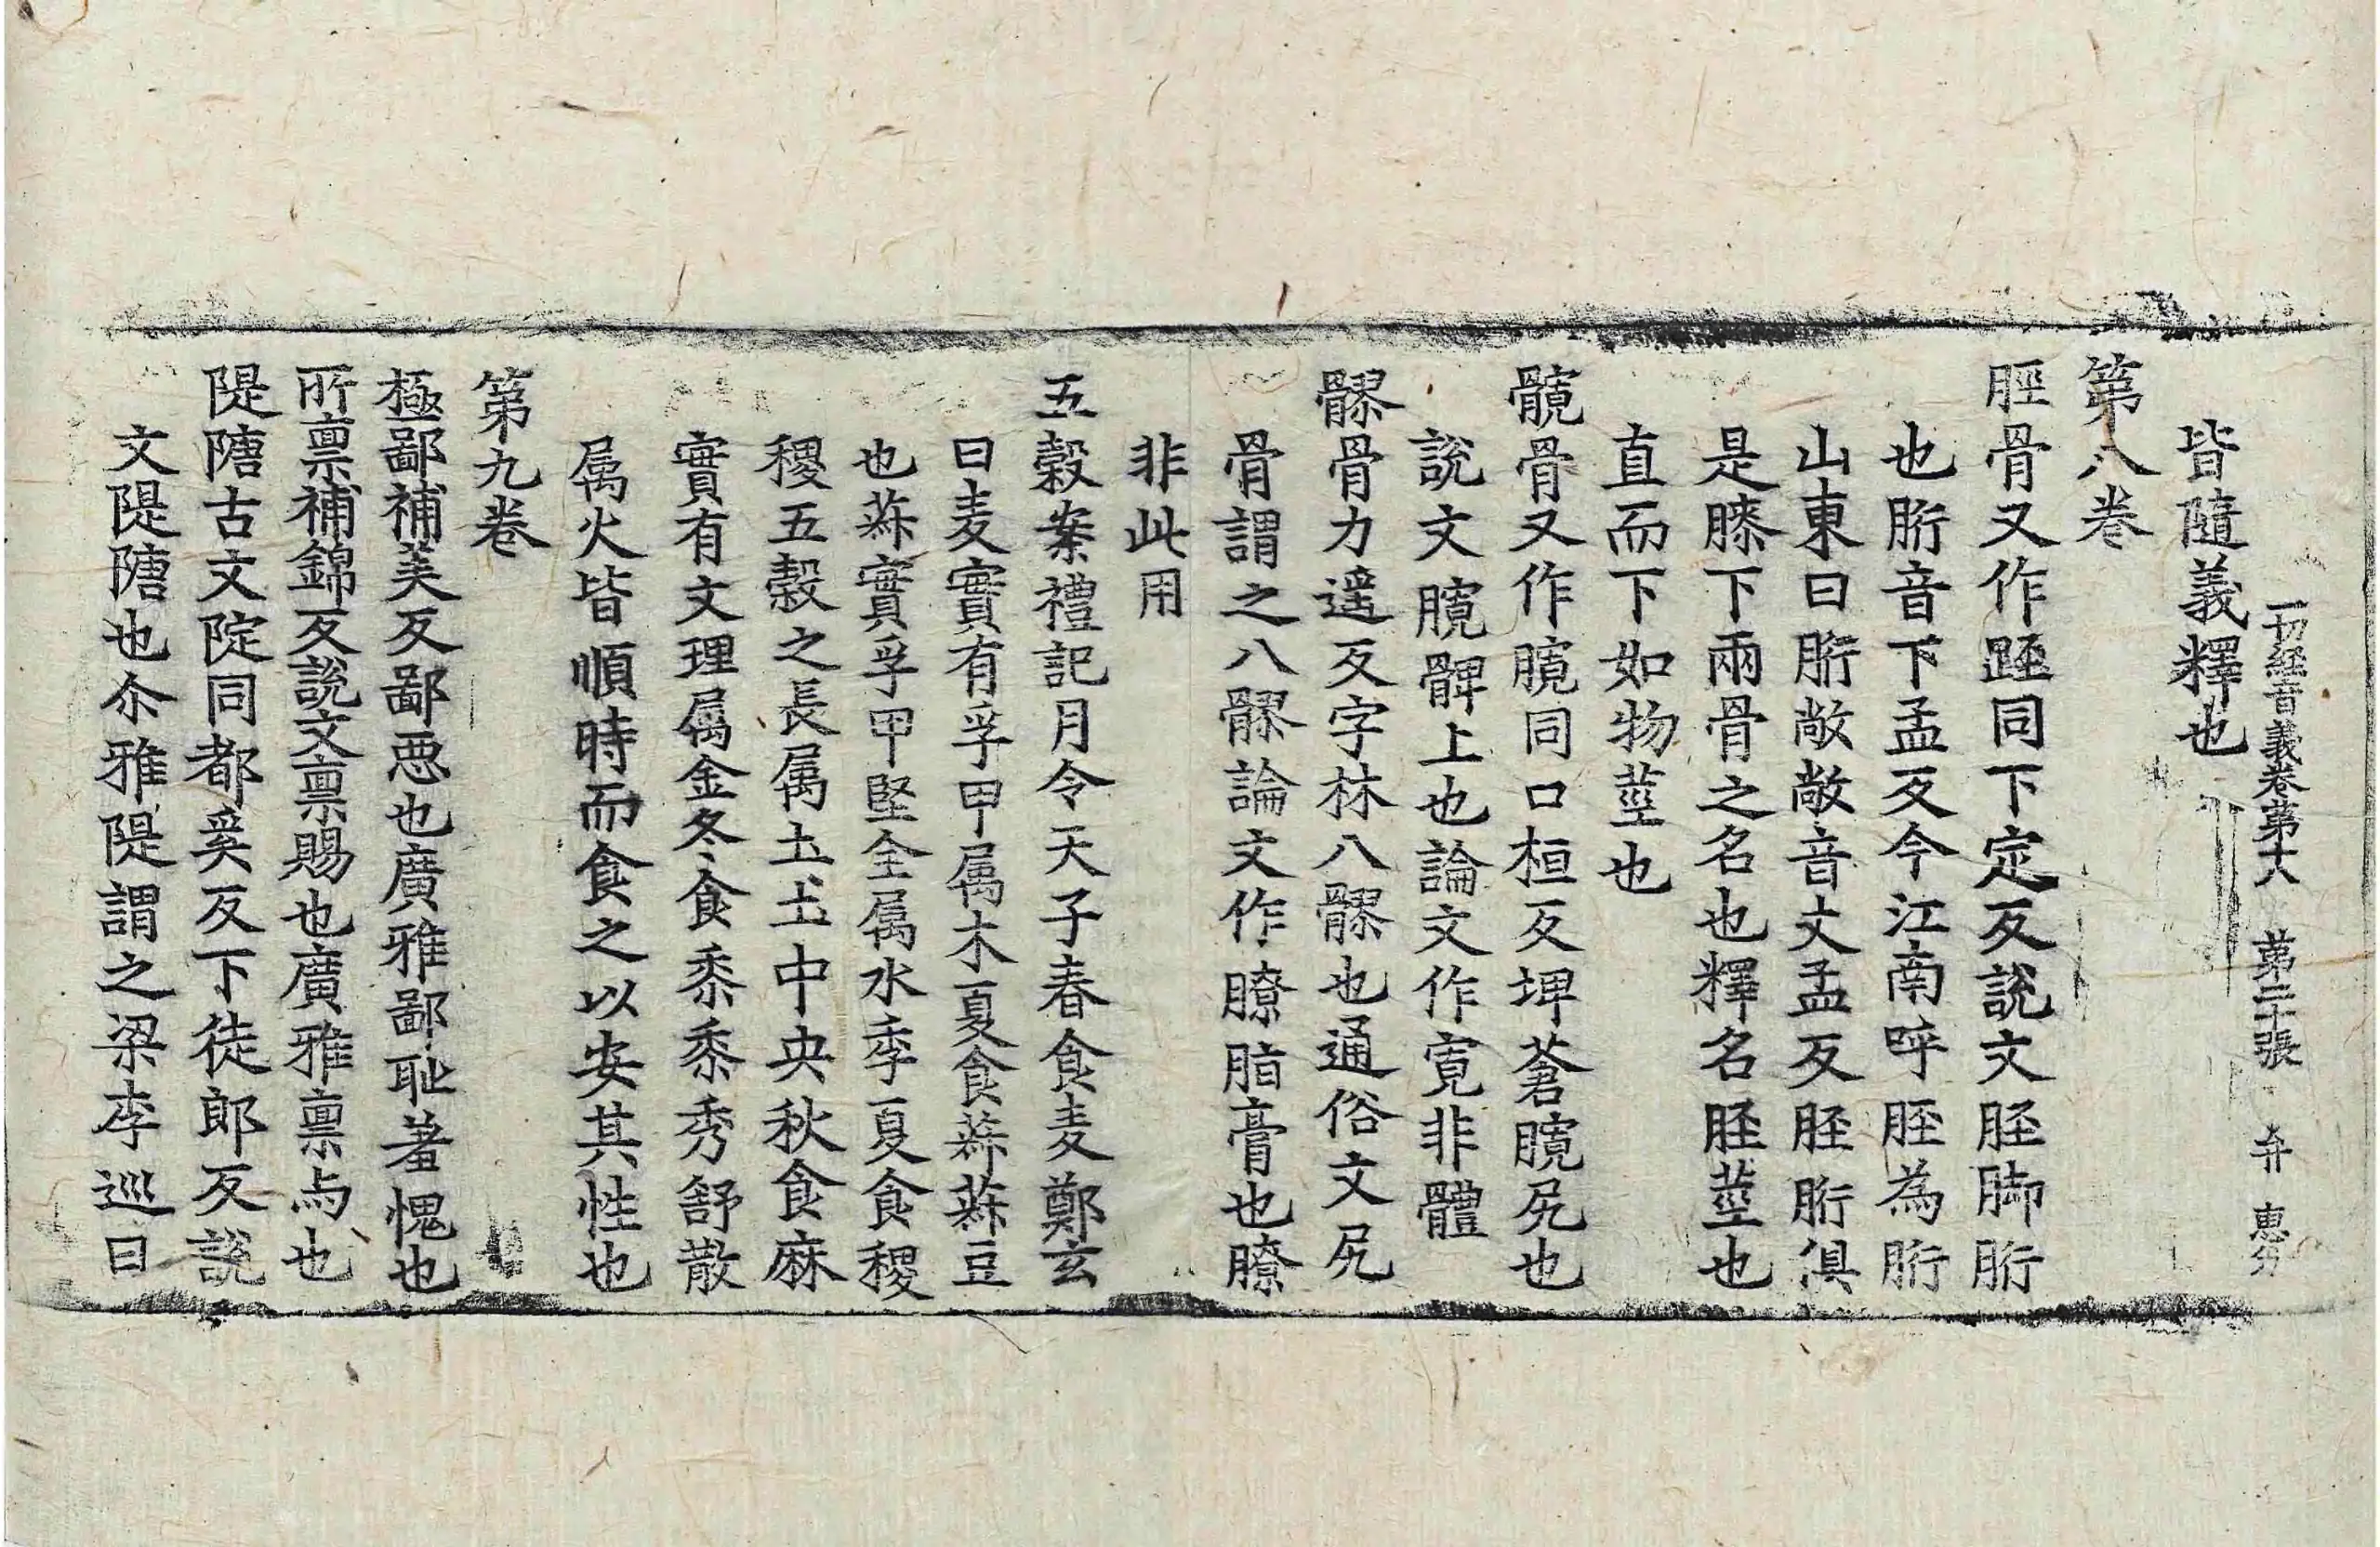 一切經音義卷第十八 第二十張 弁 惠分
皆隨義釋也
第八卷
脛骨又作踁同下定反說文脛脚胻
也胻音下孟反今江南呼脛為胻
山東曰胻敞敞音丈孟反脛胻俱
是膝下兩骨之名也釋名脛莖也
直而下如物莖也
髖骨又作臗同口桓反埤蒼臗尻也
說文臗髀上也論文作寛非體
髎骨力遥反字林八髎也通俗文尻
骨謂之八髎論文作膫脂膏也膫
非此用
五穀案禮記月令天子春食麦鄭玄
曰麦實有孚甲属木夏食菽菽豆
也菽實孚甲堅全属水季夏食稷
稷五穀之長属土土中央秋食麻
實有文理属金冬食黍黍秀舒散
属火皆順時而食之以安其性也
第九卷
極鄙補美反鄙惡也廣雅鄙耻羞愧也
所禀補錦反說文禀賜也廣雅禀与也
隄隚古文㝎同都奚反下徒郎反說
文隄隚也尒雅隄謂之梁李巡曰